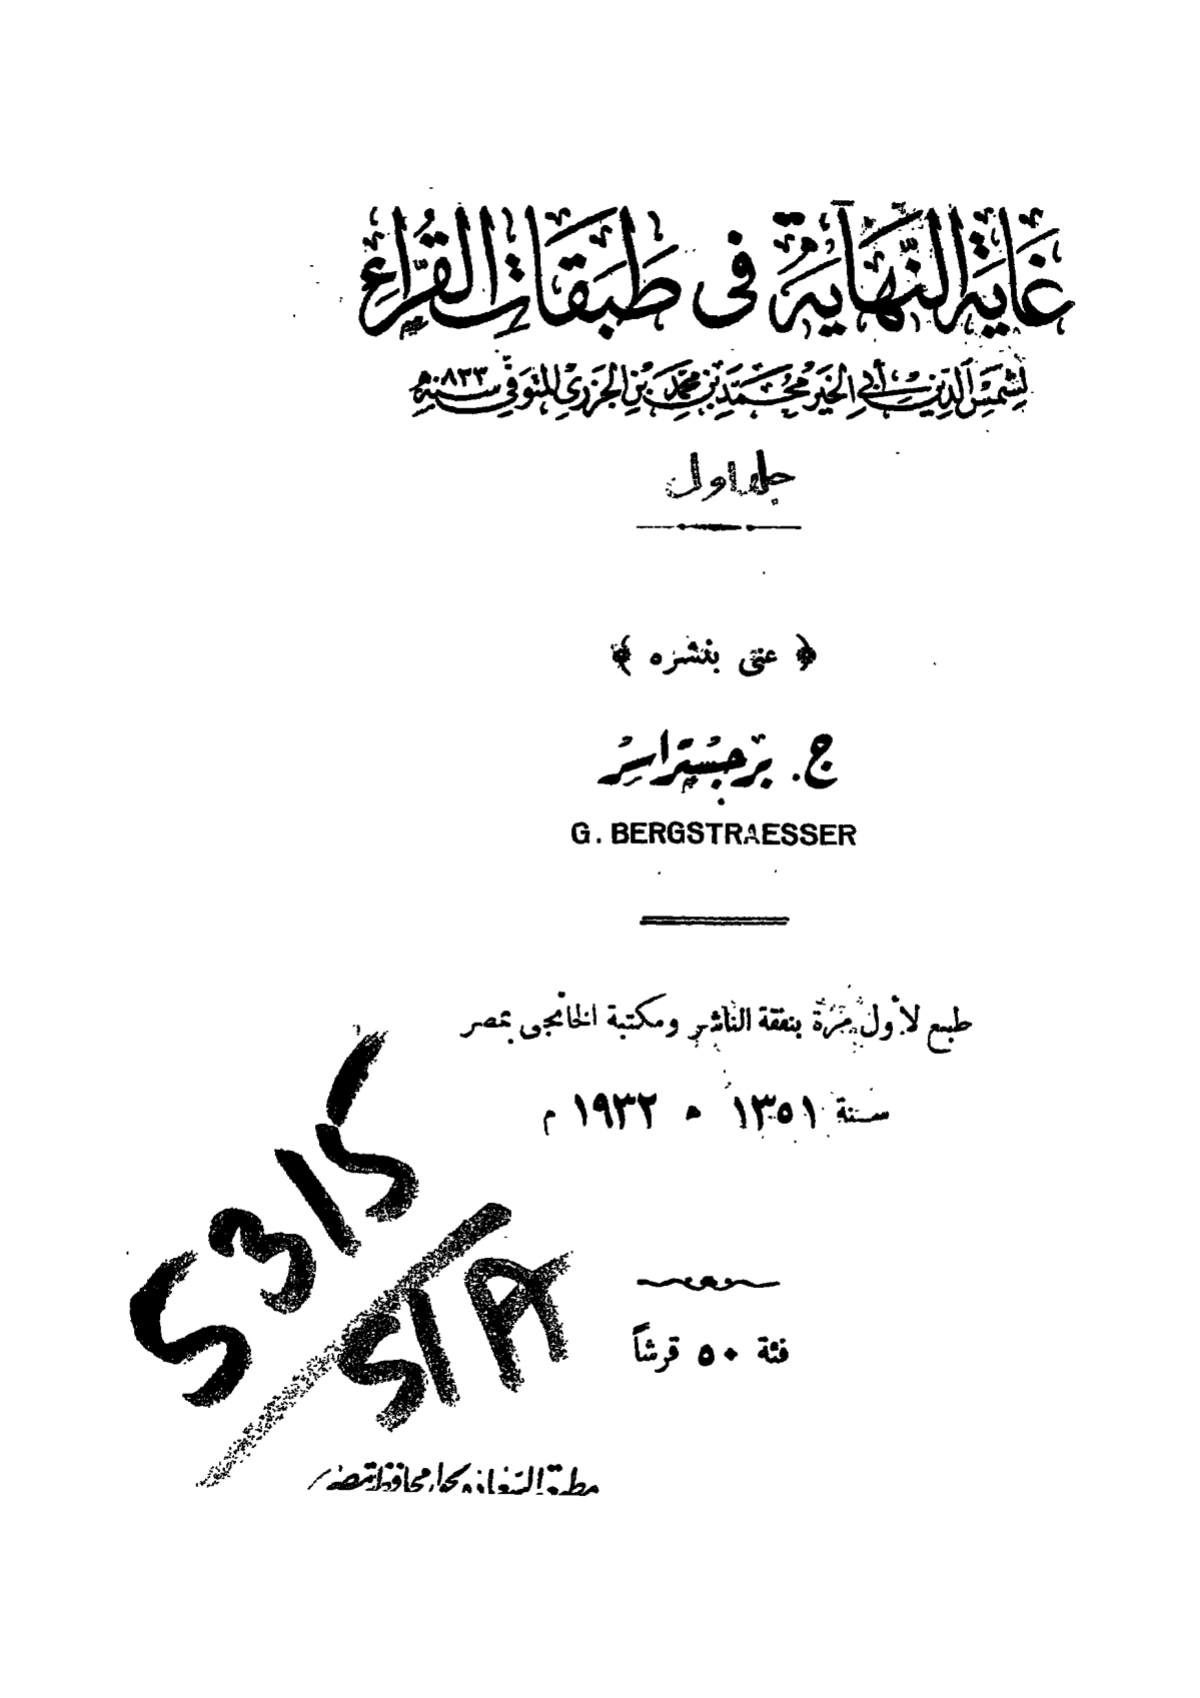 غَايَةُ النِّهَايَةِ فى طَبَقَاتِ القُرَّاءِ
لشمس الدين أبي الخير محمد بن محمد بن الجزري المتوفى سنة ٨٣٣ ه
جلد اول
﴿ عنى بنشره ﴾
ج. برجستراسر
G. BERGSTRAESSER
طبع لأول مرة بنفقة الناشر ومكتبة الخانجى بمصر
سنة ١٣٥١ ه ١٩٣٢ م
5315
فئة ٥٠ قرشاً
مطبعة السعادة بجوار محافظة مصر